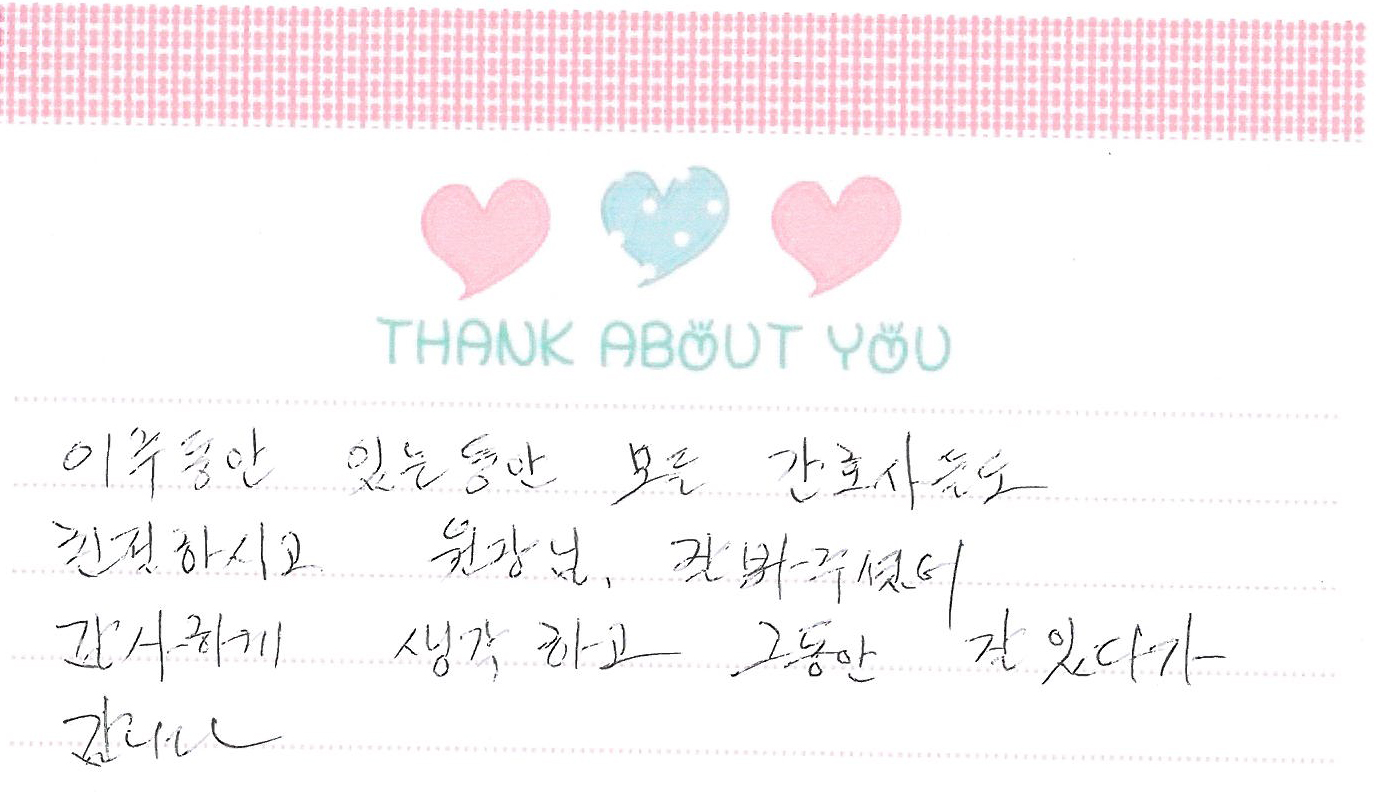 THANK ABOUT YOU
이주동안 있는동안 모든 간호사분도
친절하시고 원장님, 잘 봐주셨어
감사하게 생각 하고 그동안 잘 있다가
갑니다